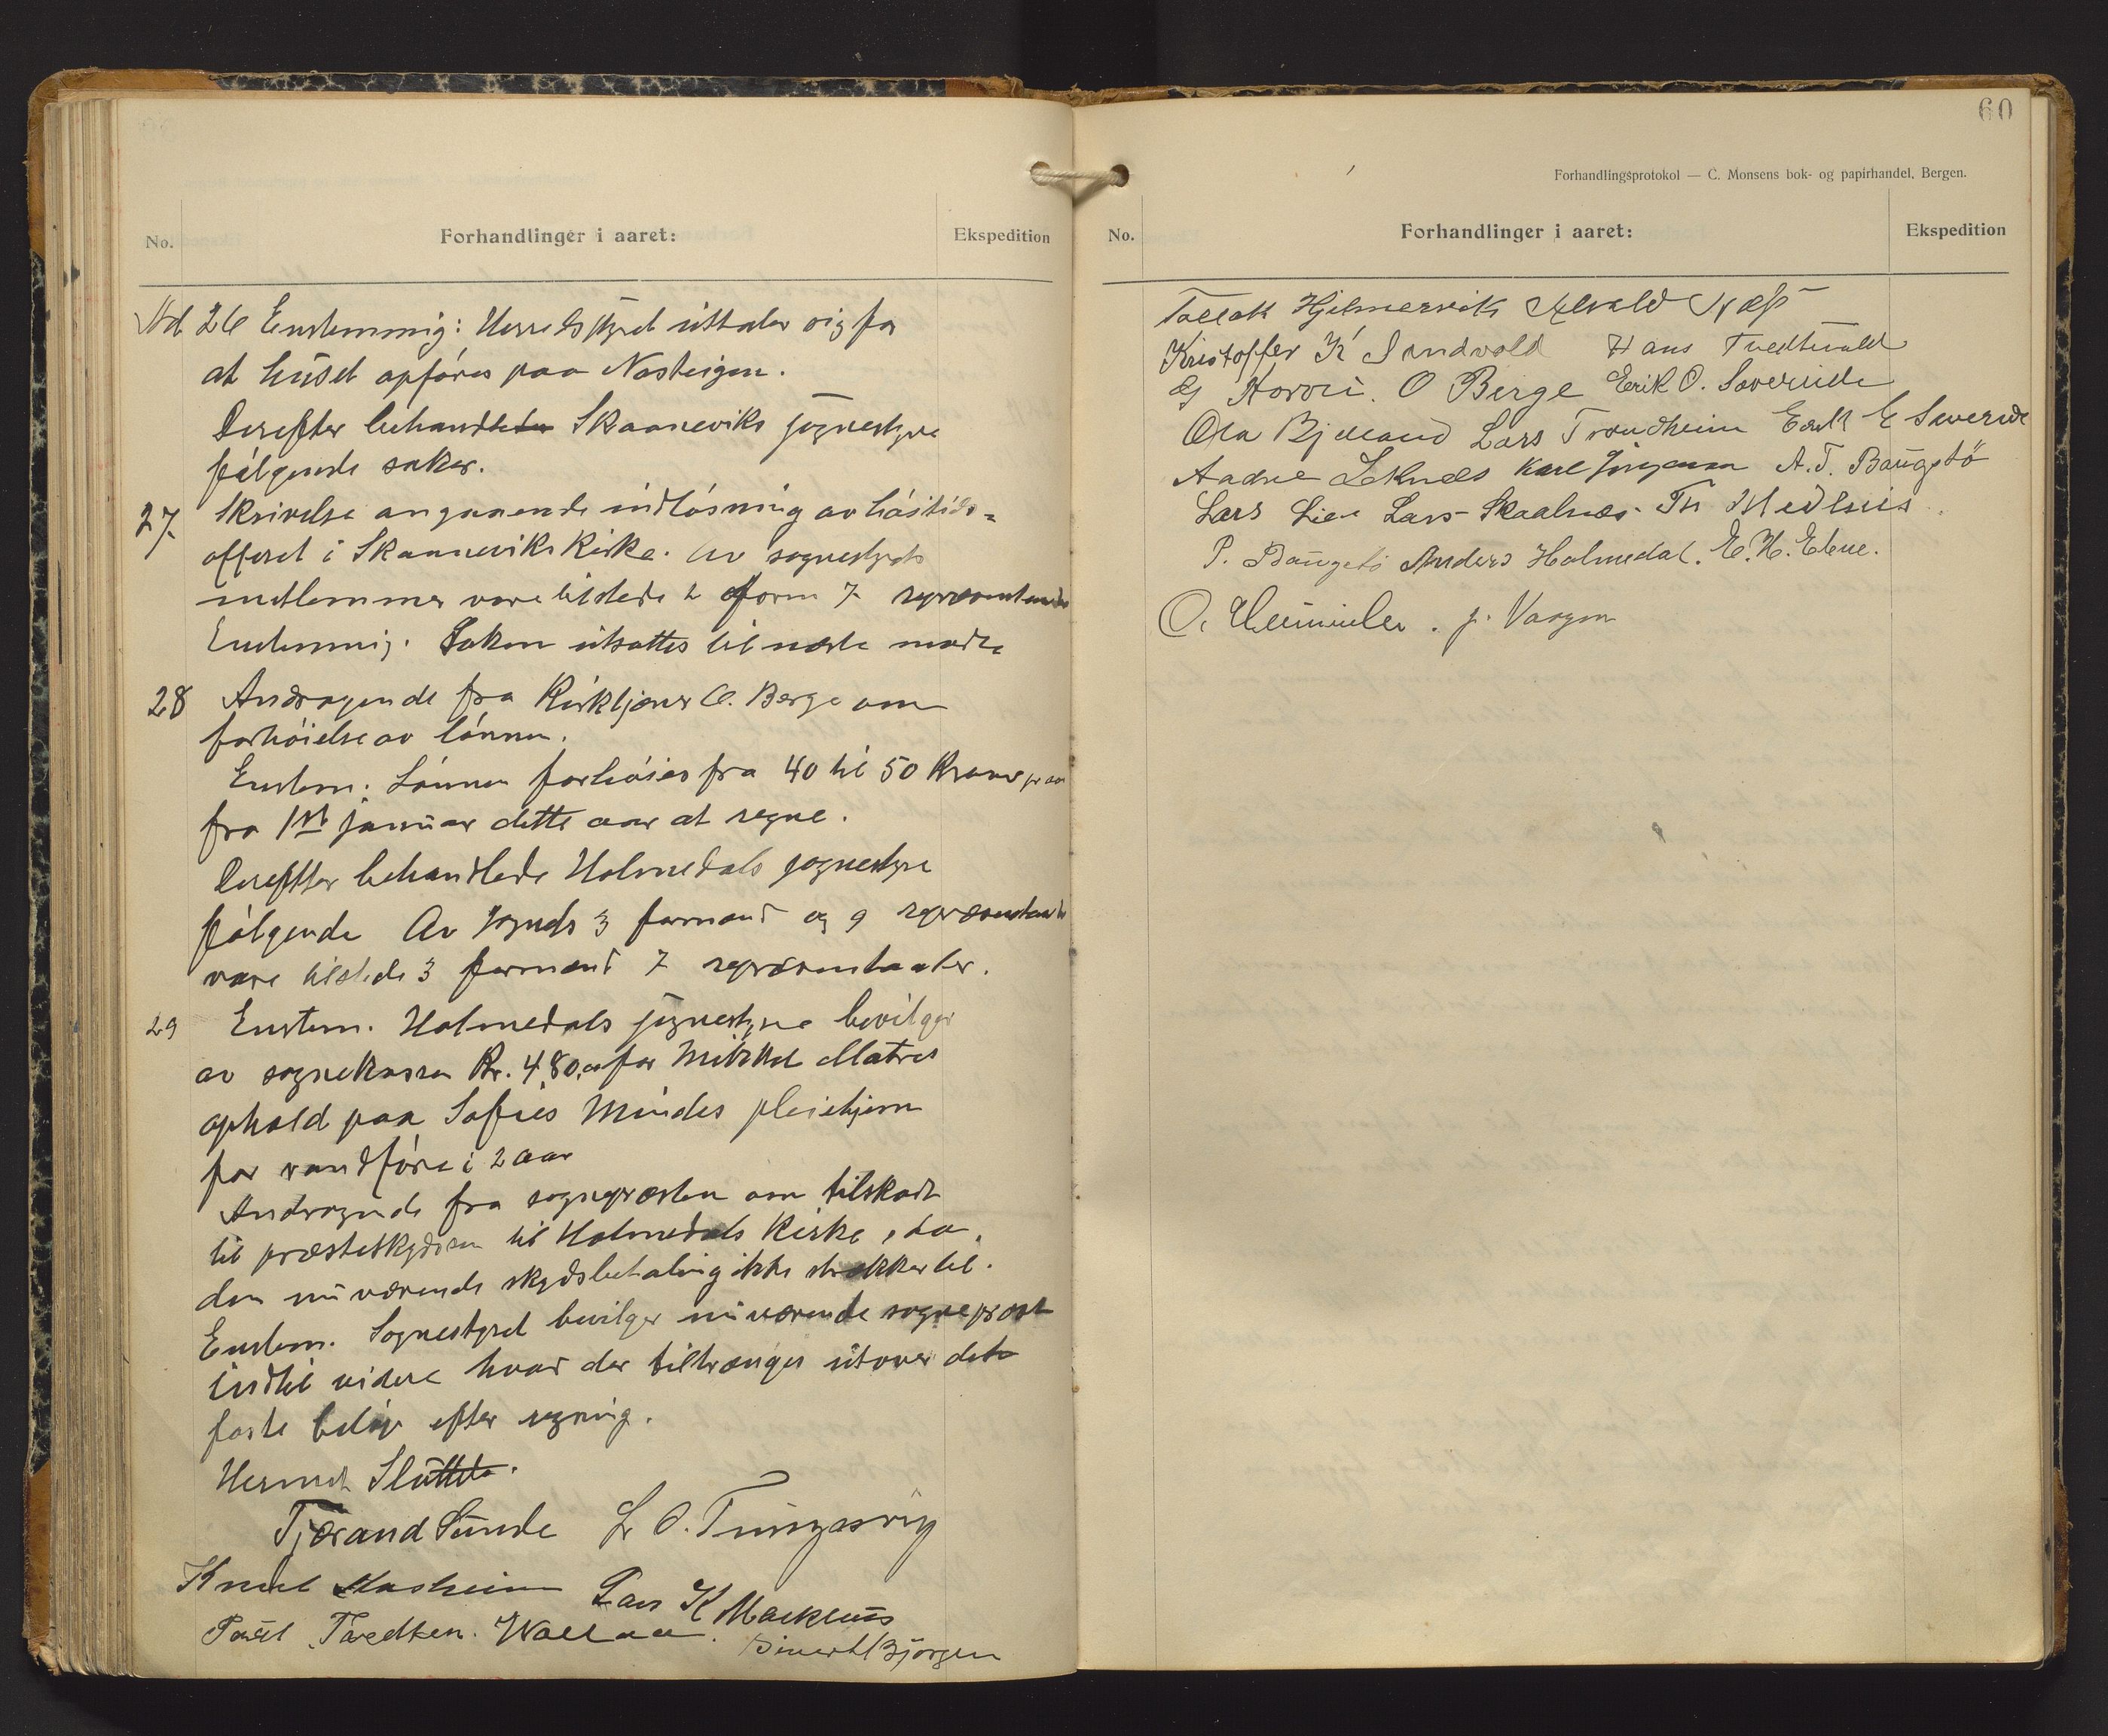 No. Forhandlinger i aaret: Ekspedition
Ved 26 Enstemmig: Herredsstyret uttaler sig for
at huset opføres paa Nasteigen.
Derefter behandlet Skaaneviks sognestyre
følgende saker.
27. Skrivelse angaaende indløsning av høitids-
offeret i Skaaneviks Kirke. Av sognestyrets
medlemmer vare tilstede 2 form 7 repræsentanter
Enstemmig. Saken utsattes til næste møde
28 Andragende fra Kirketjener O. Berge om
forhøielse av lønnen.
Enstem: Lønnen forhøies fra 40 til 50 Kroner pr aar
fra 1st januar dette aar at regne.
Derefter behandlede Holmedals sognestyre
følgende Av sognets 3 formænd og 9 repræsentanter
vare tilstede 3 formænd 7 repræsentanter.
29 Enstem. Holmedals sognestyre bevilger
av sognekassen Kr. 480,00 for Mikkel Matres
ophold paa Sofies Mindes pleiehjem
for vandføre i 2 aar
Andragende fra sognepresten om tilskudt
til presteskydsen til Holmedals Kirke, da
den nuværende skydsbetaling ikke strekker til.
Enstem. Sognestyret bevilger nuværende sogneprest
indtil videre hvad der tiltrænges utover det
faste beløp efter regning.
Hermed Sluttet.
Tjærand Sunde L O. Tungesvig
Knut Aasheim Lars K Markhus
Paul Tvedten. Wallaa. Sivert Bjørgen
60
Forhandlingsprotokol — C. Monsens bok- og papirhandel, Bergen.
No. Forhandlinger i aaret: Ekspedition
Tollak Hjelmervik Næss
Kristoffer K Sandvold Hans Tvedt
O Berge Erik O. Severeide
Ola Bjelland Lars Trondheim E Severeide
Aadne Leknes Karl Jørgensen A. T. Baugstø
Lars Lie Lars Skaalnes. Th Medhus
P. Baugstø Anders Holmedal. E. H. Ebne.
O. J. Vaagen